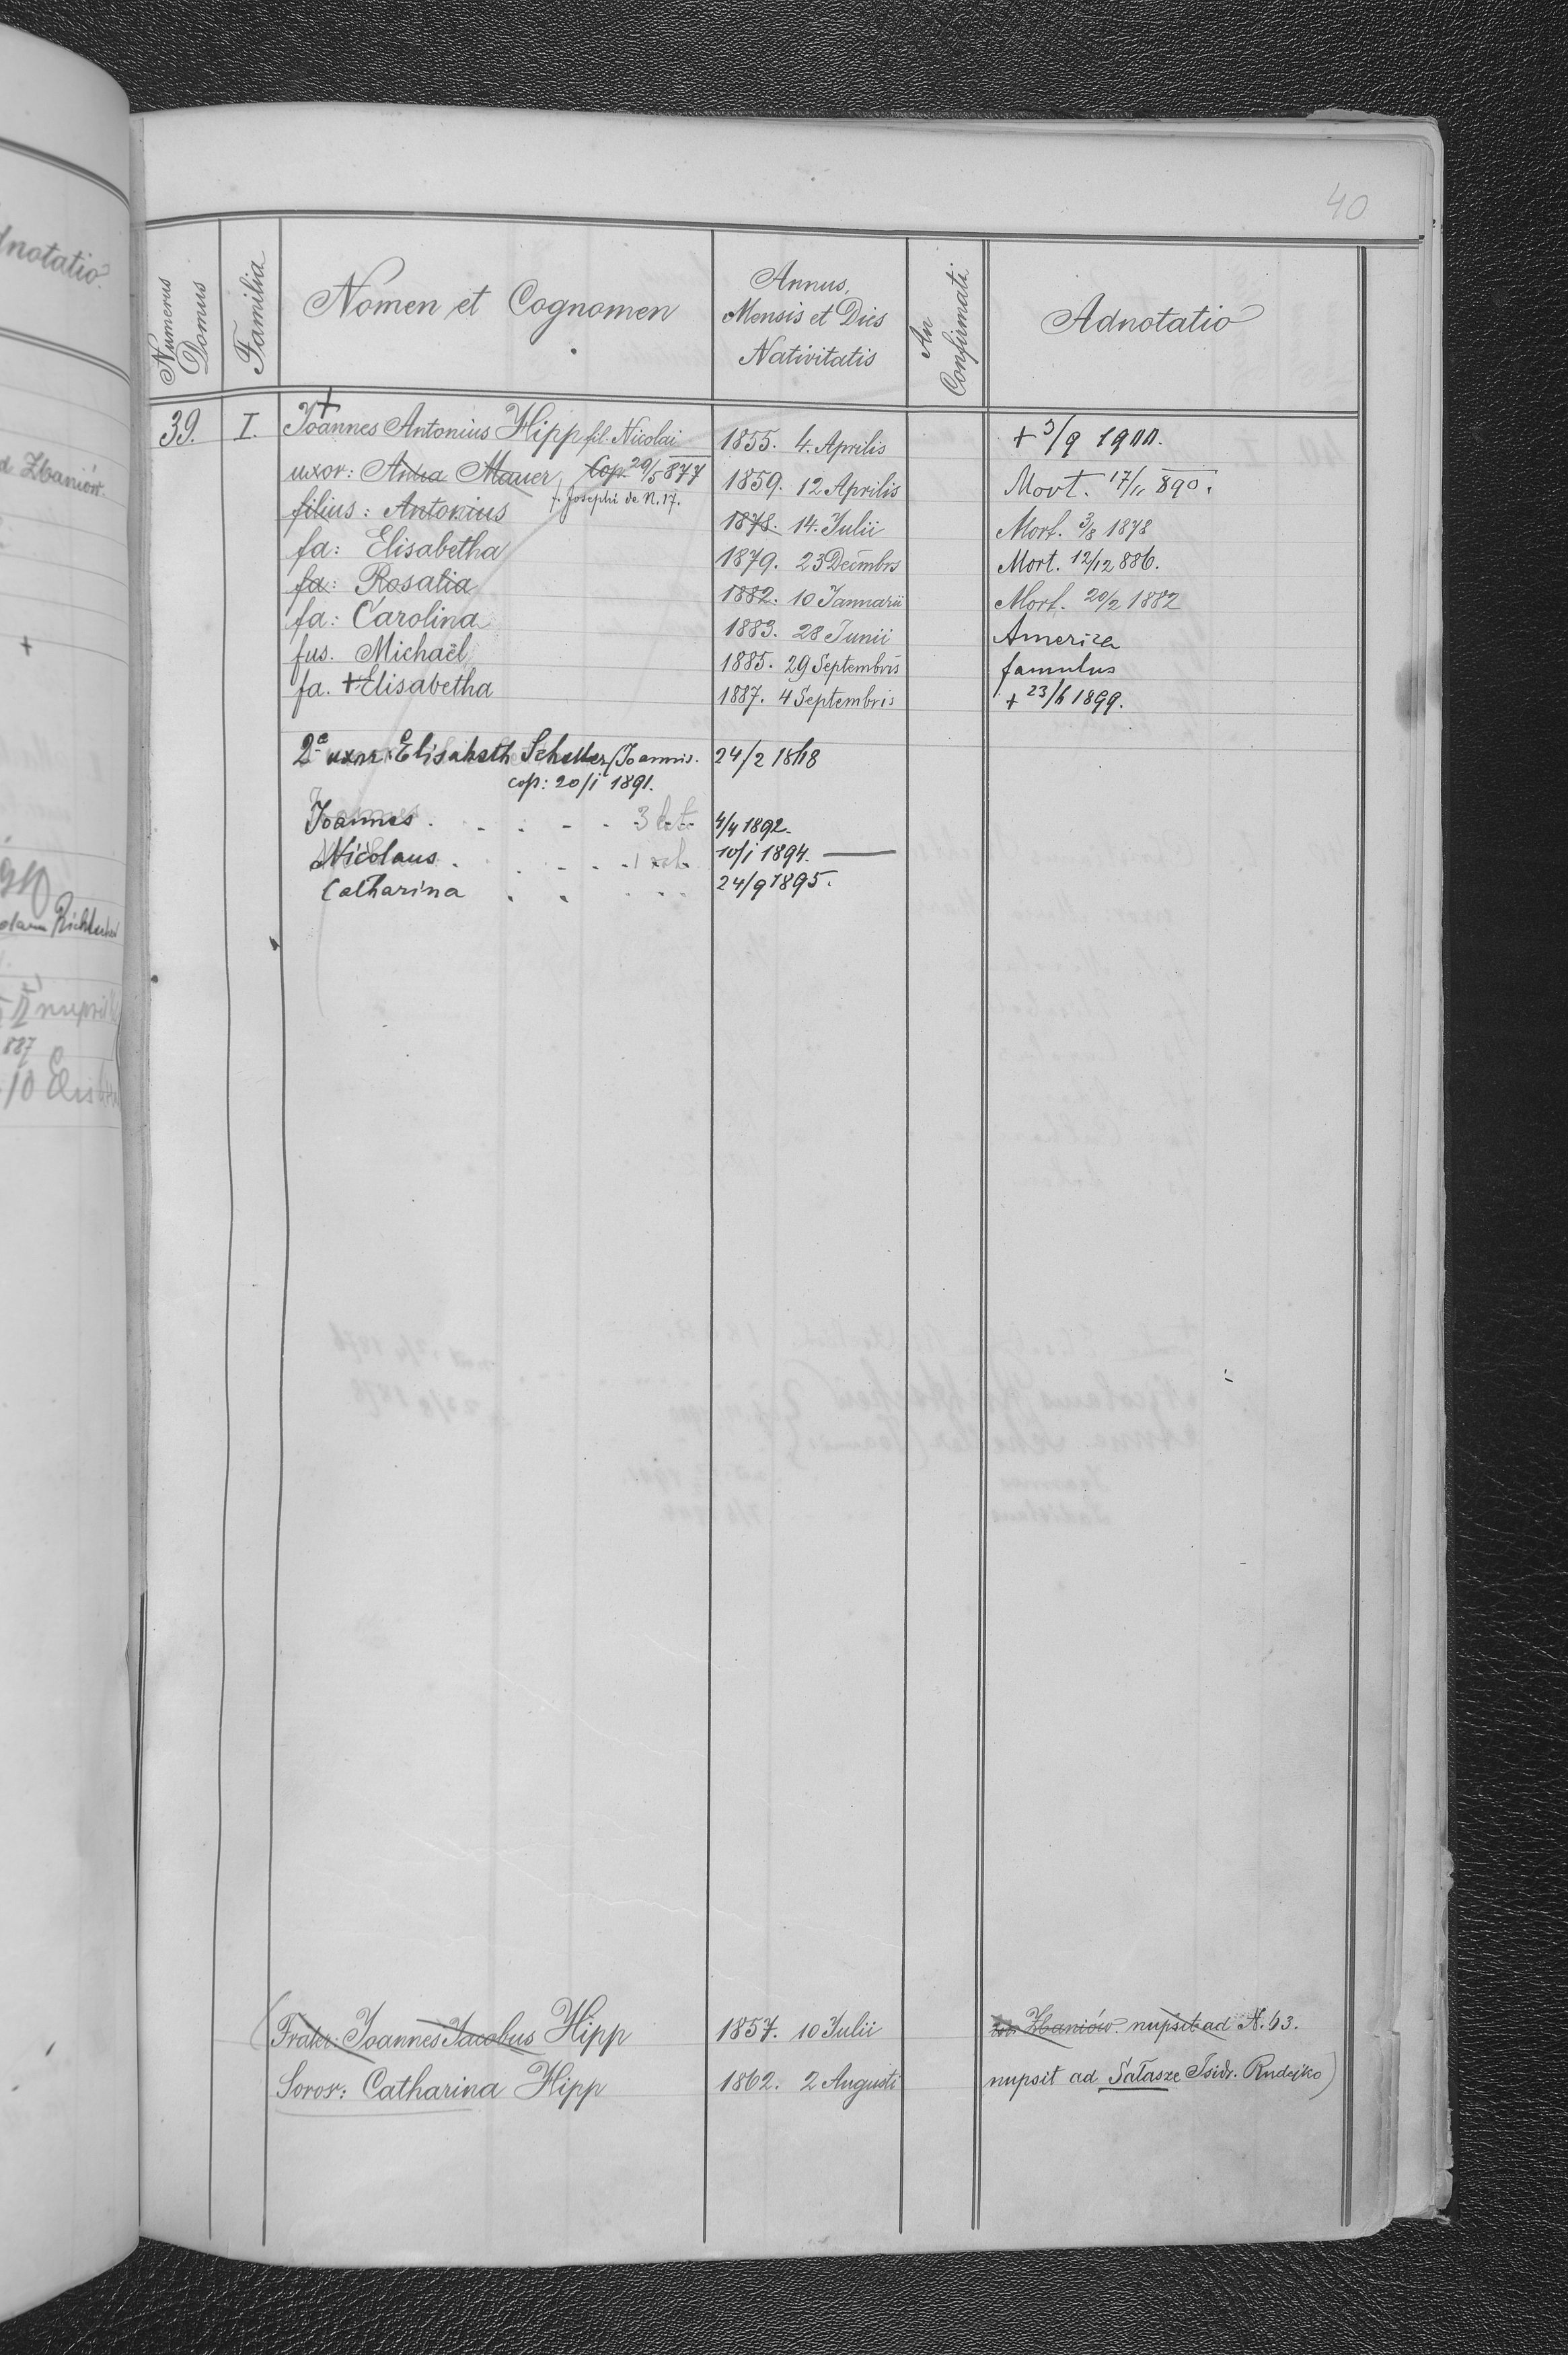 dnotatio.
d Zbaniów.
olaum
II nupsit
887
10 Elis
40
Numerus Domus
Familia
Nomen et Cognomen
Annus, Mensis et Dies Nativitatis
An Confirmati
Adnotatio
39. I. Joannes Antonius Hipp fil. Nicolai 1855. 4. Aprilis + 3/9 1900.
uxor: Anna Mauer Cop. 29/5 877 1859. 12 Aprilis Mort. 17/11 890.
f. Josephi de N. 17.
filius: Antonius 1878. 14. Julii Mort. 3/8 1878
fa: Elisabetha 1879. 23 Decmbrs Mort. 12/12 886.
fa: Rosalia 1882. 10 Januarii Mort. 20/2 1882
fa: Carolina 1883. 28 Junii America
fus. Michaël 1885. 29 Septembris famulus
fa. + Elisabetha 1887. 4 Septembris + 23/6 1899.
2a uxor: Elisabeth Scheller f. Joannis. 24/2 1868
cop: 20/i 1891.
Joannes 4/4 1892.
Nicolaus 10/i 1894.
Catharina 24/9 1895.
Frater: Joannes Jacobus Hipp 1857. 10 Julii Zbaniów. nupsit ad N. 63.
Soror: Catharina Hipp 1862. 2 Augusti nupsit ad Sałasze Isidr. Rudejko)